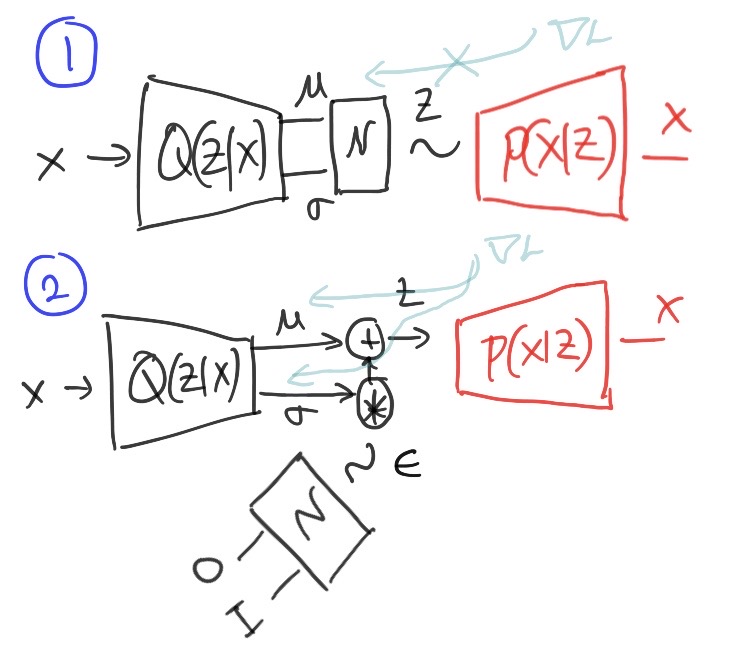 1
∇L
x → Q(z|x) μ σ N z ~ p(x|z) x
2
∇L
x → Q(z|x) μ σ + * z → p(x|z) x
~ ϵ
N
0
I